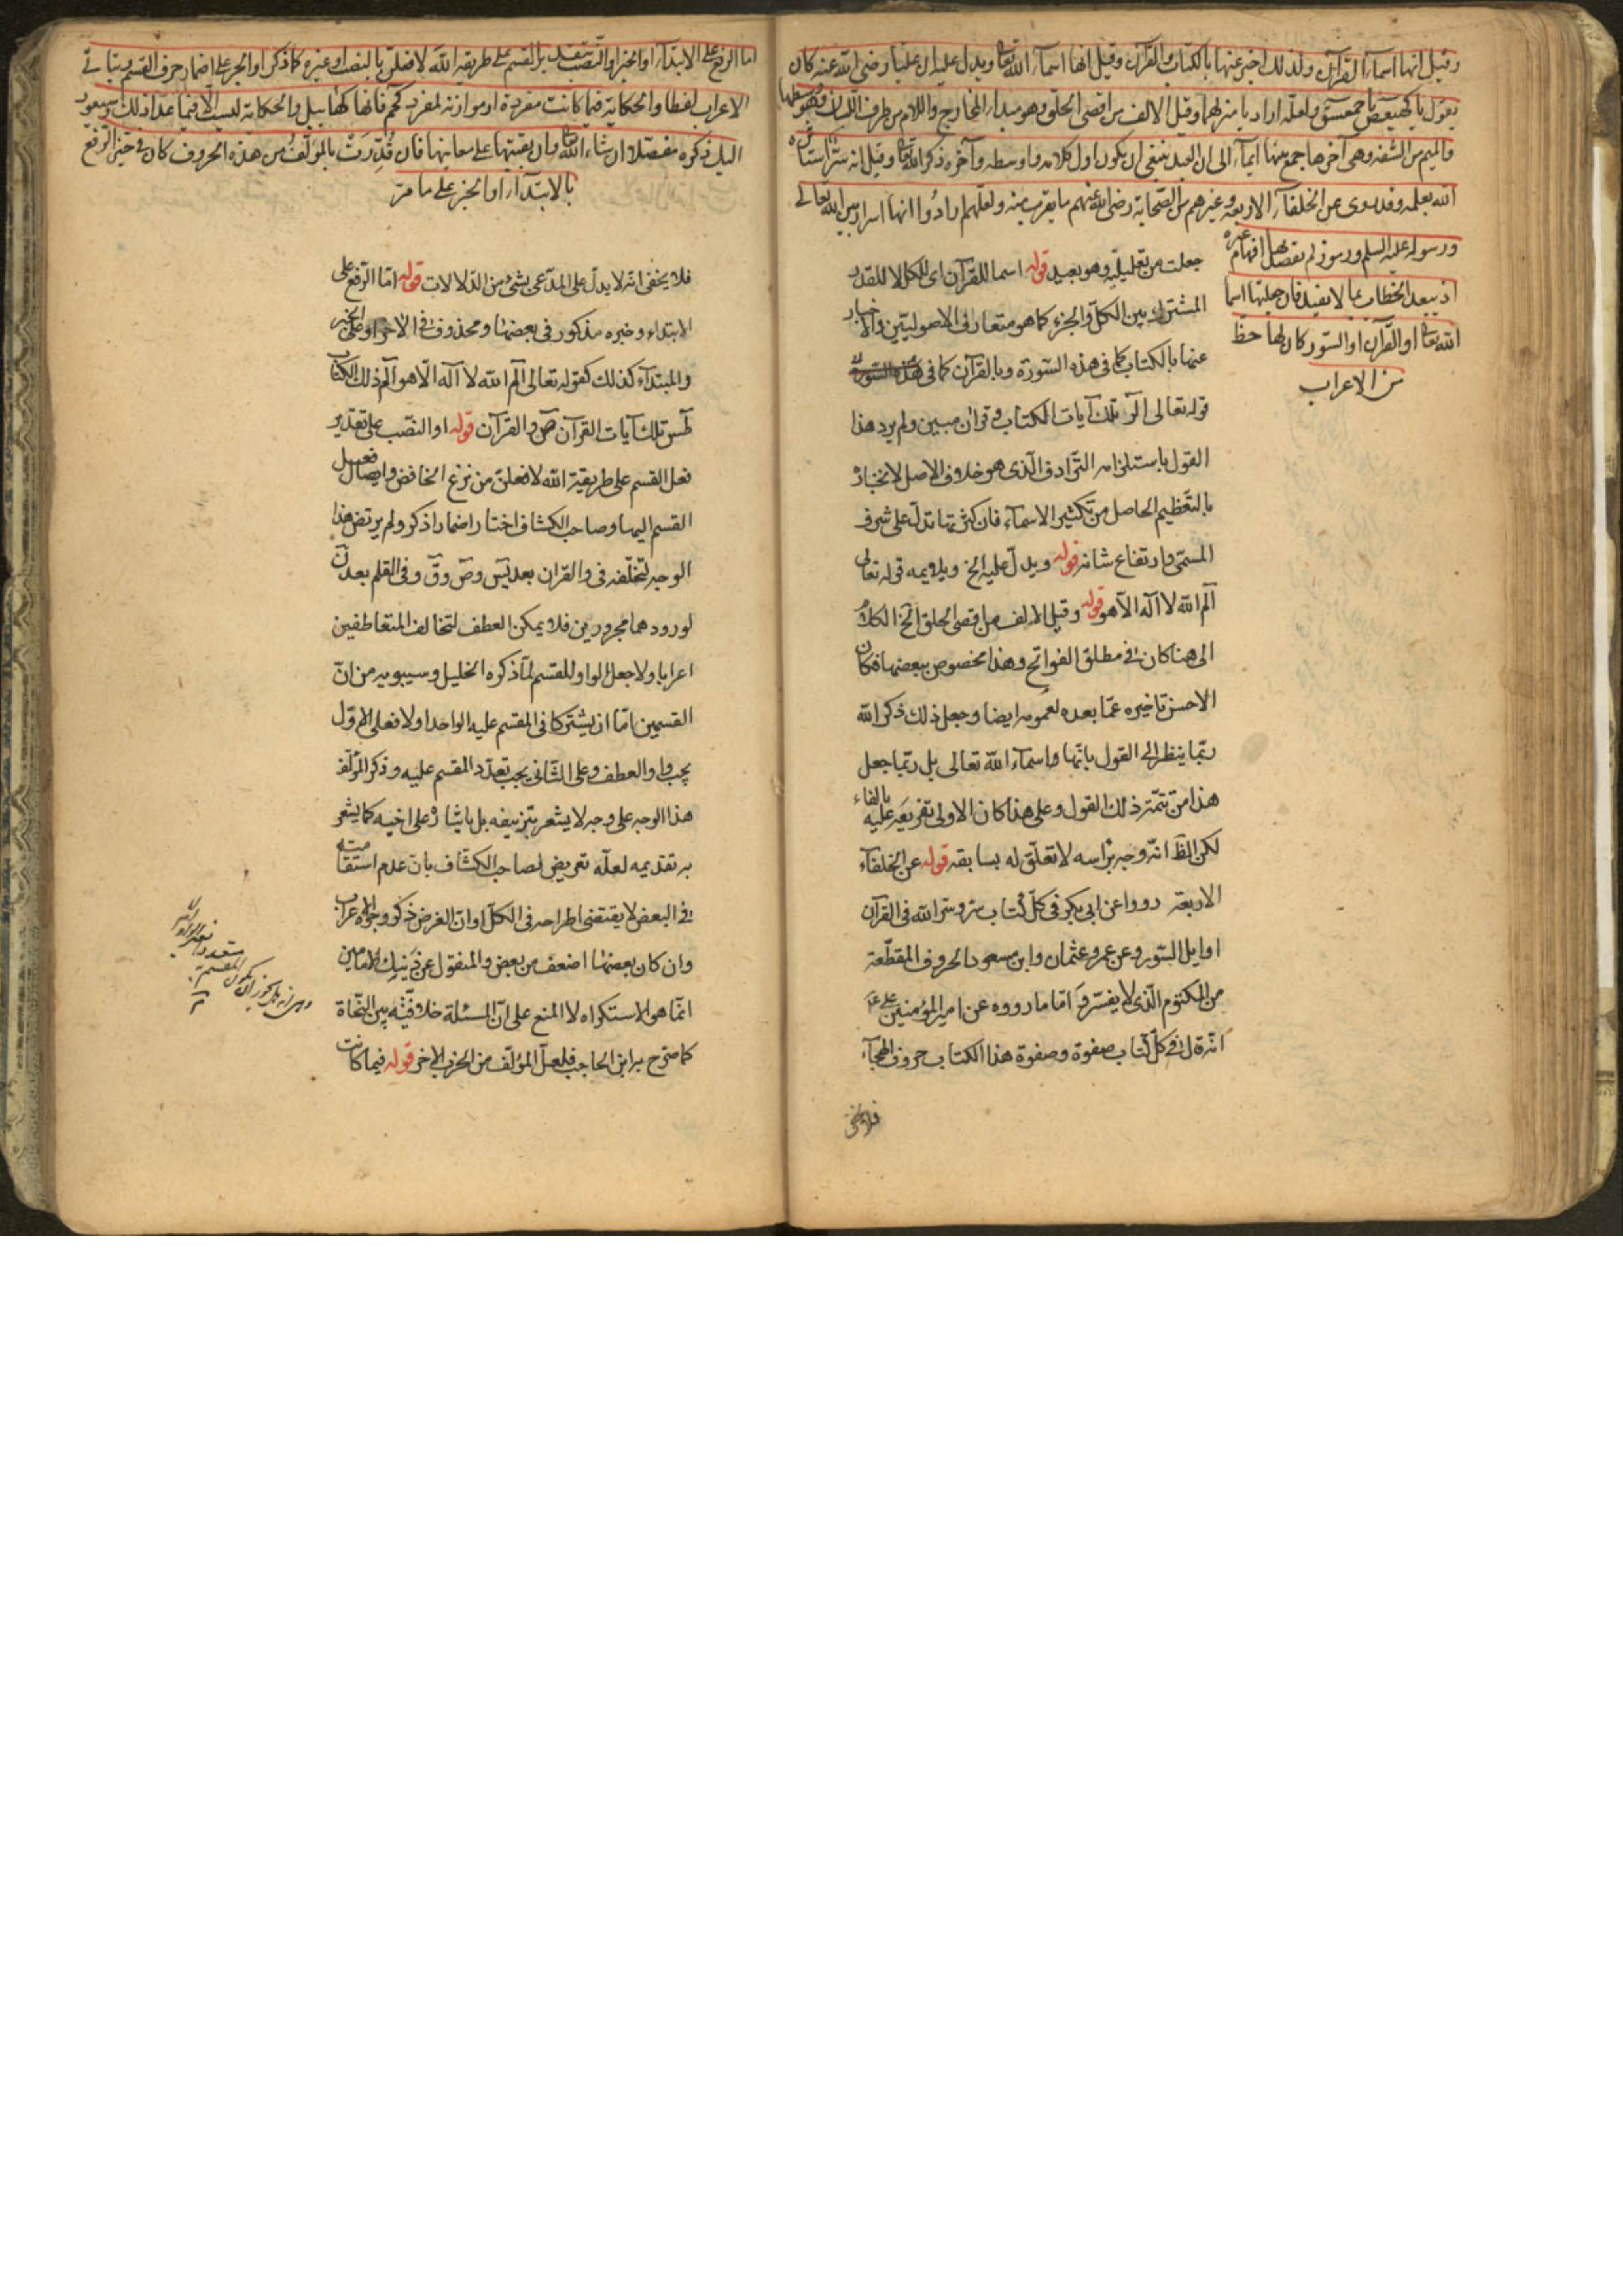 وقيل انها اسماء القرآن ولذلك اخبر عنها بالكتاب والقرآن وقيل انها اسماء الله تعالى ويدل عليه ان عليا رضى الله عنه كان
يقول يا كهيعص يا حمعسق ولعله اراد يا منزلهما وقيل الالف من اقصى الحلق وهو مبداء المخارج واللام من طرف اللسان وهو وسطها
والميم من الشفه وهى آخرها جمع بينها ايماء الى ان العبد ينبغى ان يكون اول كلامه واوسطه وآخره ذكر الله تعالى وقيل انه سر استاثره
الله بعلمه وقد روى عن الخلفاء الاربعه وغيرهم من الصحابة رضى الله عنهم ما يقرب منه ولعلهم ارادوا انها اسرار بين الله تعالى
ورسوله عليه السلم ورموز لم يقصد بها افهام غيره
اذ يبعد الخطاب بما لا يفيد فان جعلتها اسما
الله تعالى او القرآن او السور كان لها حظ
من الاعراب
جعلت من تعليليه وهو بعيد قوله اسما للقرآن اى للكل لا للقدر
المشترك بين الكل والجزء كما هو متعارف الاصوليين والاخبار
عنها بالكتاب كما فى هذه السورة وبالقرآن كما فى
قوله تعالى الر تلك آيات الكتاب وقران مبين ولم يرد هذا
القول باستلزامه الترادف الذى هو خلاف الاصل لانجباره
بالتعظيم الحاصل من تكثير الاسماء فان كثرتها تدل على شرف
المسمى وارتفاع شانه قوله ويدل عليه الخ ويلايمه قوله تعالى
الم الله لا اله الا هو قوله وقيل الالف من اقصى الحلق الخ الكلام
الى هنا كان فى مطلق الفواتح وهذا مخصوص ببعضها فكان
الاحسن تاخيره عما بعده لعمومه ايضا وجعل ذلك ذكر الله
ربما ينظر الى القول بانها اسماء الله تعالى بل ربما جعل
هذا من تتمة ذلك القول وعلى هذا كان الاولى تفريعه عليه بالفاء
لكن الظ انه وجه براسه لا تعلق له بسابقه قوله عن الخلفاء
الاربعة رووا عن ابى بكر فى كل كتاب سر وسر الله فى القرآن
اوايل السور وعن عمر وعثمان وابن مسعود الحروف المقطعة
من المكتوم الذى لا يفسر واما ما رووه عن امير المؤمنين على ع
انه قال فى كل كتاب صفوة وصفوة هذا الكتاب حروف الهجاء
فلا يخفى
اما الرفع على الابتداء او الخبر او النصب بتقدير القسم على طريقة الله لافعلن بالنصب او غيره كما ذكر او الجر على اضمار حرف القسم ويتاتى
الاعراب لفظا والحكاية فيما كانت مفردة او موازنة لمفرد كحم فانها كهابيل والحكاية ليست الا فيما عدا ذلك وسيعود
اليك ذكره مفصلا ان شاء الله تعالى وان بقيتها على معانيها فان قدرت بالمؤلف من هذه الحروف كان فى حيز الرفع
بالابتداء او الخبر على ما مر
فلا يخفى انه لا يدل على المدعى بشئ من الدلالات قوله اما الرفع على
الابتداء وخبره مذكور فى بعضها ومحذوف فى الاخر او على الخبر
والمبتداء كذلك كقوله تعالى الم الله لا اله الا هو الم ذلك الكتاب
طس تلك آيات القرآن ص والقرآن قوله او النصب على تقدير
فعل القسم على طريقة الله لافعلن من نزع الخافض وايصال فعل
القسم اليها وصاحب الكشاف اختار اضمار اذكر ولم يرتض هذا
الوجه لتخلفه فى والقران بعد يس وص وق وفى القلم بعد ن
لورودهما مجرورين فلا يمكن العطف لتخالف المتعاطفين
اعرابا ولا جعل الواو للقسم لما ذكره الخليل وسيبويه من ان
القسمين اما ان يشتركا فى المقسم عليه الواحد او لا فعلى الاول
يجب واو العطف وعلى الثانى يجب تعدد المقسم عليه وذكر المؤلف
هذا الوجه على وجه لا يشعر بتزييفه بل بايثاره على اخيه كما يشعر
به تقديمه لعله تعريض لصاحب الكشاف بان عدم استقامته
فى البعض لا يقتضى اطراحه فى الكل او ان الغرض ذكر وجوه الاعراب
وان كان بعضها اضعف من بعض والمنقول عن ذينك الامامين
انما هو الاستكراه لا المنع على ان المسئلة خلافية بين النحاة
كما صرح به ابن الحاجب فلعل المؤلف من الحزب الاخر قوله فيما كانت